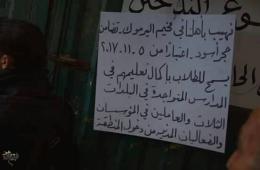 نهيب بأهلنا في مخيم اليرموك - تضامن
حجر أسود - اعتباراً من ٥-١١-٢٠١٧
يسمح للطلاب بإكمال تعليمهم في
المدارس المتواجدة في البلدات
الثلاث والعاملين في المؤسسات
والفعاليات المدنية من دخول المنطقة